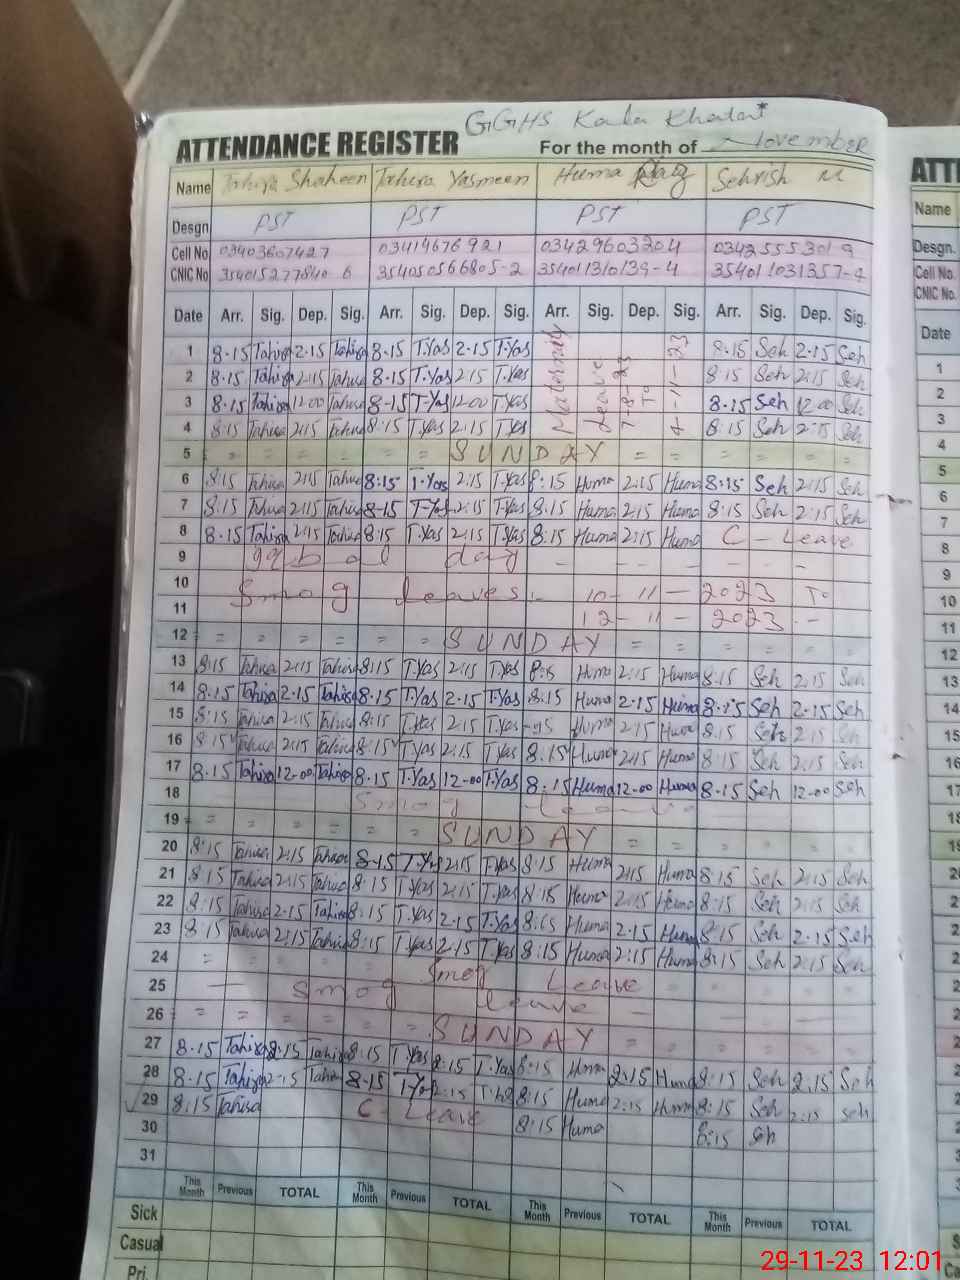 GGHS Kala Khatai
ATTENDANCE REGISTER For the month of November
Name Tahira Shaheen Tahira Yasmeen Huma Sehrish M
Desgn PST PST PST PST
Cell No 03403607427 03414676921 03429603204 03425553019
CNIC No 354015277840 6 354050566805-2 354011310139-4 354011031357-4
Date Arr. Sig. Dep. Sig. Arr. Sig. Dep. Sig. Arr. Sig. Dep. Sig. Arr. Sig. Dep. Sig.
1 8.15 Tahira 2.15 Tahira 8.15 T.Yas 2.15 T.Yas 8.15 Seh 2.15 Seh
2 8.15 Tahira 2:15 Tahira 8.15 T.Yas 2:15 T.Yas 8.15 Seh 2:15 Seh
3 8.15 Tahira 12.00 Tahira 8-15 T-Yas 12.00 T.Yas 8.15 Seh 12.00 Seh
4 8:15 Tahira 2:15 Tahira 8:15 T.Yas 2:15 T.Yas 8:15 Seh 2:15 Seh
Leave
5 = = = = = = SUNDAY = = = = =
6 8:15 Tahira 2:15 Tahira 8:15 T.Yas 2:15 T.Yas 8:15 Huma 2:15 Huma 8:15 Seh 2:15 Seh
7 8:15 Tahira 2:15 Tahira 8-15 T-Yas 2:15 T.Yas 8.15 Huma 2:15 Huma 8:15 Seh 2:15 Seh
8 8.15 Tahira 2:15 Tahira 8:15 T.Yas 2:15 T.Yas 8:15 Huma 2:15 Huma C - Leave
9 Iqbal day - - - - - - -
10 Smog leaves - 10-11-2023 To
11 12-11-2023 -
12 = = = = = = SUNDAY = = = = =
13 8:15 Tahira 2:15 Tahira 8:15 T.Yas 2:15 T.Yas 8:15 Huma 2:15 Huma 8:15 Seh 2:15 Seh
14 8.15 Tahira 2.15 Tahira 8.15 T.Yas 2.15 T.Yas 8:15 Huma 2.15 Huma 8.15 Seh 2.15 Seh
15 8:15 Tahira 2:15 Tahira 8:15 T.Yas 2:15 T.Yas Huma 2:15 Huma 8:15 Seh 2:15 Seh
16 8:15 Tahira 2:15 Tahira 8:15 T.Yas 2:15 T.Yas 8.15 Huma 2:15 Huma 8:15 Seh 2:15 Seh
17 8.15 Tahira 12.00 Tahira 8.15 T.Yas 12.00 T.Yas 8.15 Huma 12.00 Huma 8.15 Seh 12.00 Seh
18 Smog leave
19 = = = = = = SUNDAY = = = = =
20 8:15 Tahira 2:15 Tahira 8.15 T.Yas 2:15 T.Yas 8:15 Huma 2:15 Huma 8:15 Seh 2:15 Seh
21 8:15 Tahira 2:15 Tahira 8:15 T.Yas 2:15 T.Yas 8:15 Huma 2:15 Huma 8:15 Seh 2:15 Seh
22 8:15 Tahira 2.15 Tahira 8:15 T.Yas 2.15 T.Yas 8:15 Huma 2.15 Huma 8:15 Seh 2.15 Seh
23 8:15 Tahira 2:15 Tahira 8:15 T.Yas 2.15 T.Yas 8:15 Huma 2:15 Huma 8:15 Seh 2:15 Seh
24 = = = = = Smog Leave = = = = =
25 Smog leave
26 = = = = = = SUNDAY = = = = =
27 8.15 Tahira 2.15 Tahira 8:15 T.Yas 2:15 T.Yas 8:15 Huma 2:15 Huma 8:15 Seh 2:15 Seh
28 8.15 Tahira 2:15 Tahira 8.15 T.Yas 2:15 8:15 Huma 2:15 Huma 8:15 Seh 2:15 Seh
29 8:15 Tahira C - Leave 8:15 Huma 8:15 Seh
30
31
This Month Previous TOTAL This Month Previous TOTAL This Month Previous TOTAL This Month Previous TOTAL
Sick
Casual
Pri.
Name
Desgn.
Cell No.
CNIC No.
Date
1
2
3
4
5
6
7
8
9
10
11
12
13
14
15
16
17
29-11-23 12:01